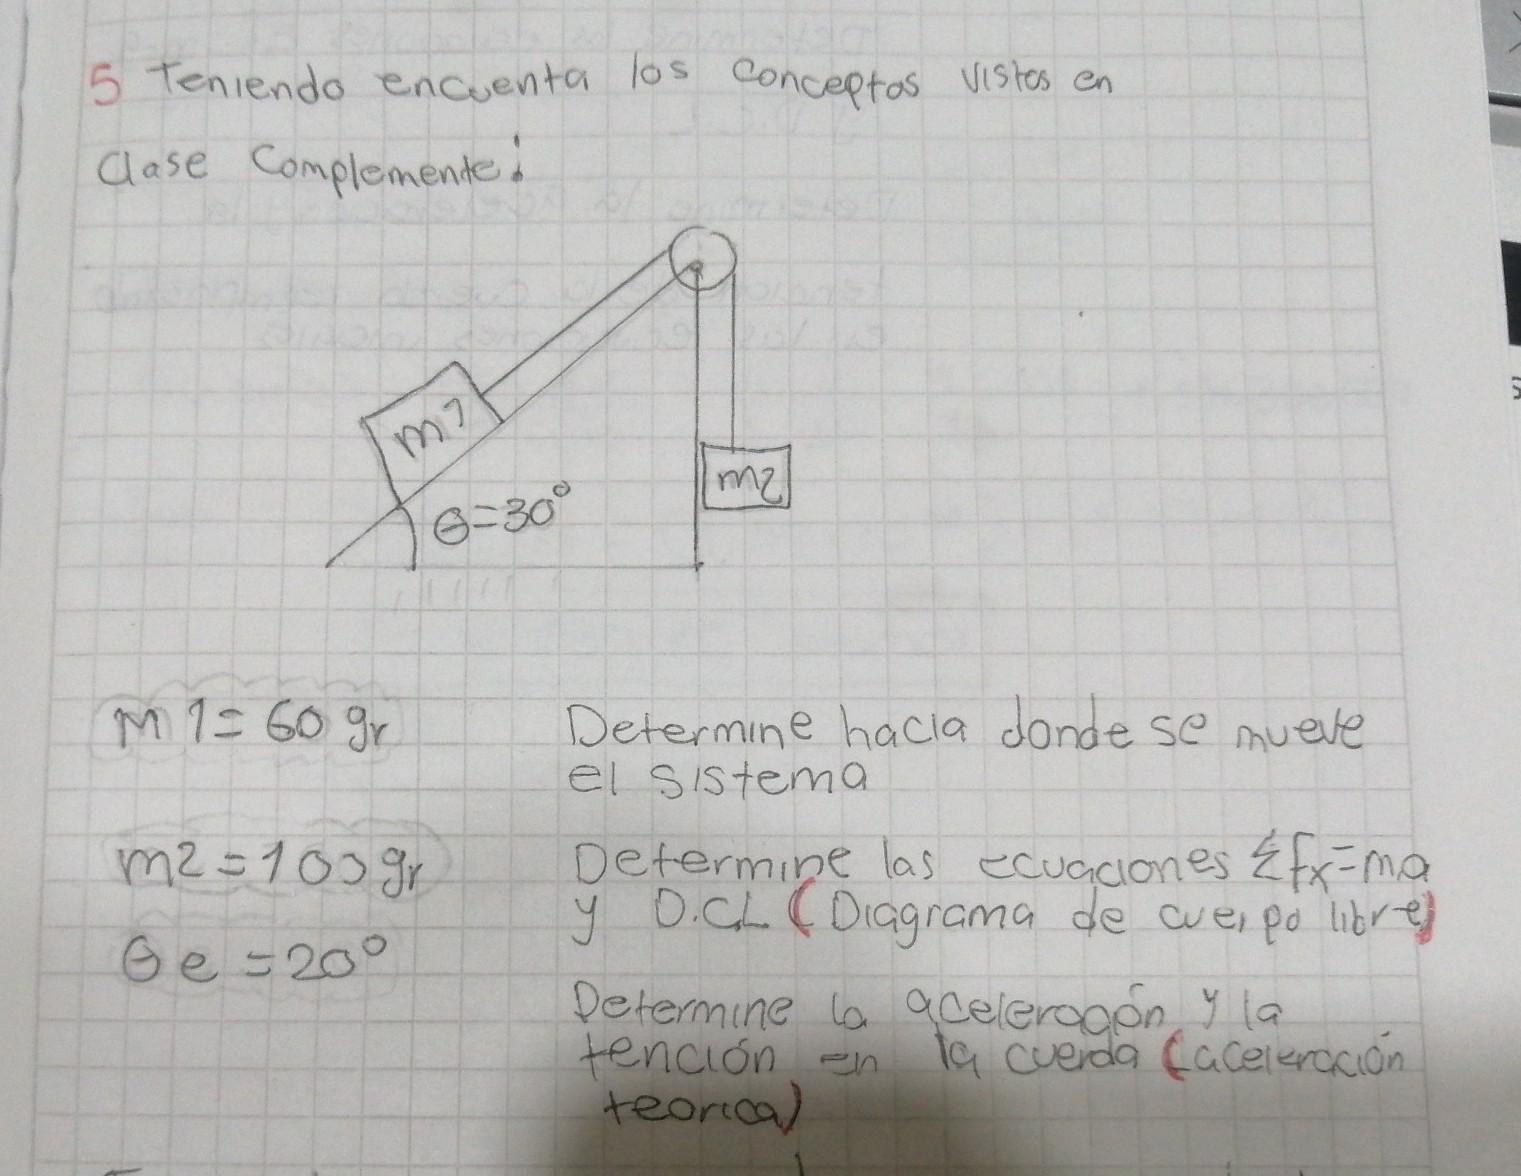 5 Teniendo encuenta los conceptos vistos en
Clase Complemente:
m1
m2
θ=30°
m1=60 gr
Determine hacia donde se mueve
el sistema
m2=100gr
Determine las ecuaciones Σfx=ma
y D.CL (Diagrama de cuerpo libre)
θe=20°
Determine la aceleragón y la
tención en la cuerda (aceleración
teorica)